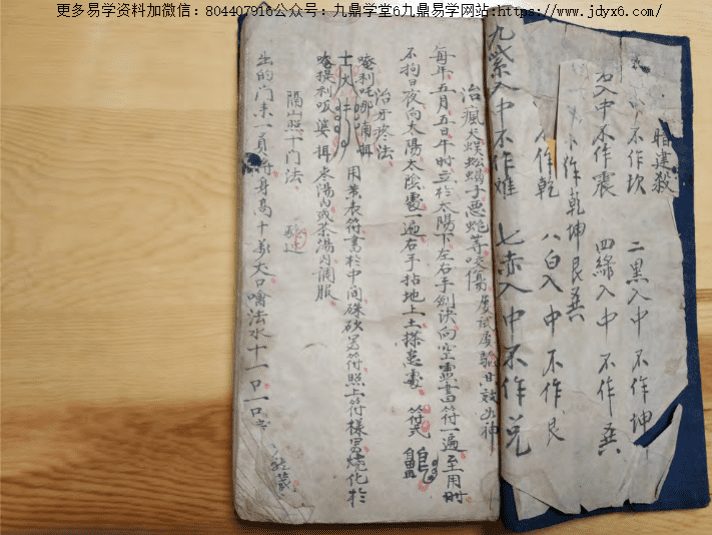 更多易学资料加微信：804407916公众号：九鼎学堂6九鼎易学网站:https://www.jdyx6.com/
暗建殺
不作坎 二黑入中 不作坤
入中 不作震 四綠入中 不作巽
作乾坤艮巽
不作乾 八白入中 不作艮
九紫入中 不作離 七赤入中 不作兌
治瘋犬蜈蚣蝎子惡蛇等咬傷屢試屢驗甘效如神
每年五月五日午時立於太陽下左右手劍訣向空虛書符一遍至用時
不拘日夜向太陽太陰處一遍右手拈地上土搽患處 符式
治牙疼法
唵利吒哪喃㖿 用黃表符書於中間硃砂寫符照上符樣寫燒化於
茶湯內或茶湯內調服
隔山照千門法
出的門來一員將身高十丈大口噙法水十一口一口